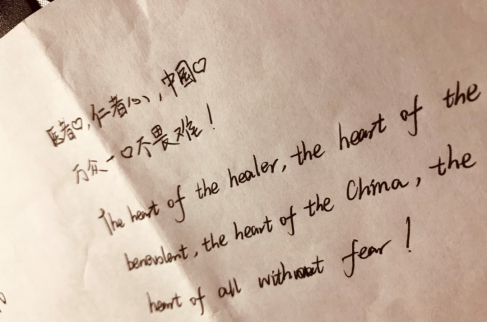 医者♡,仁者心,中国♡
万众一♡不畏难!
The heart of the healer, the heart of the
benevolent, the heart of the China, the
heart of all without fear!